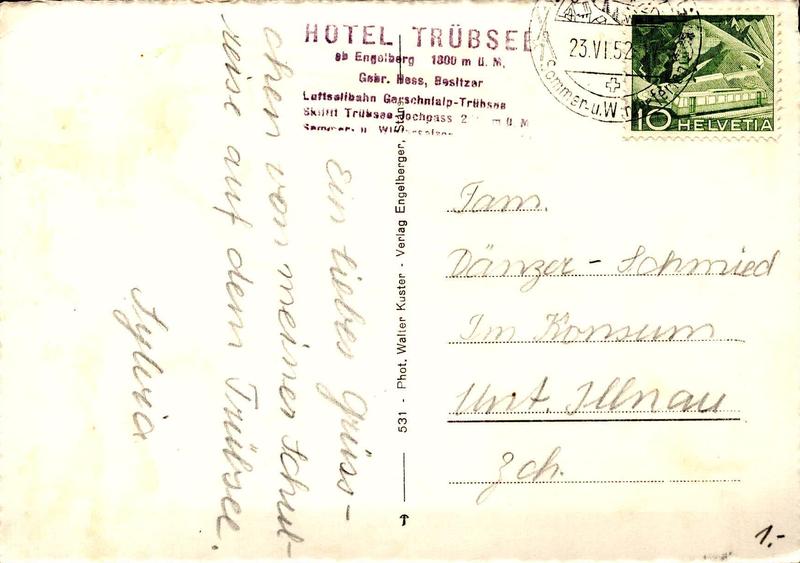 HOTEL TRÜBSEE
ob Engelberg 1800 m ü. M.
Gebr. Hess, Besitzer
Luftseilbahn Gerschnialp-Trübsee
Skilift Trübsee-Jochpass 2 m ü M
Sommer- u. Wintersaison
23.VI.52
Sommer- u. W
10 HELVETIA
Ein liebes Grüss-
chen von meiner Schul-
reise auf dem Trübsee.
Sylvia
531 - Phot. Walter Kuster - Verlag Engelberger, Stan
Fam.
Dänzer - Schmied
Im Konsum
Unt. Illnau
Zch.
1.-